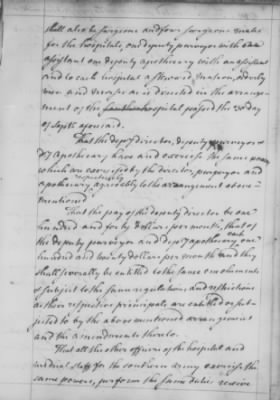 shall also be surgeons and four surgeons mates
for the hospitals, one deputy purveyor with one
assistant one deputy apothecary with an assistant
and to each hospital a steward, matron, orderly
men and nurses as is directed in the arrange-
ment of the hospital passed the 30 day
of Septr aforesaid.
That the depy director, deputy purveyor &
Dy apothecary have and exercise the same powers
which are exercised by the director, purveyor and
apothecary respectively agreeably to the arrangement above-
mentioned
That the pay of the deputy director be one
hundred and forty dollars per month, that of
the deputy purveyor and depy apothecary each one
hundred and twenty dollars per month and they
shall severally be entitled to the same emoluments
& subject to the same regulations and restrictions
as their respective principals are entitled or sub-
jected to by the above mentioned arrangement
and the amendments thereto.
That all the other officers of the hospital and
medical staff for the southern army exercise the
same powers, perform the same duties receive